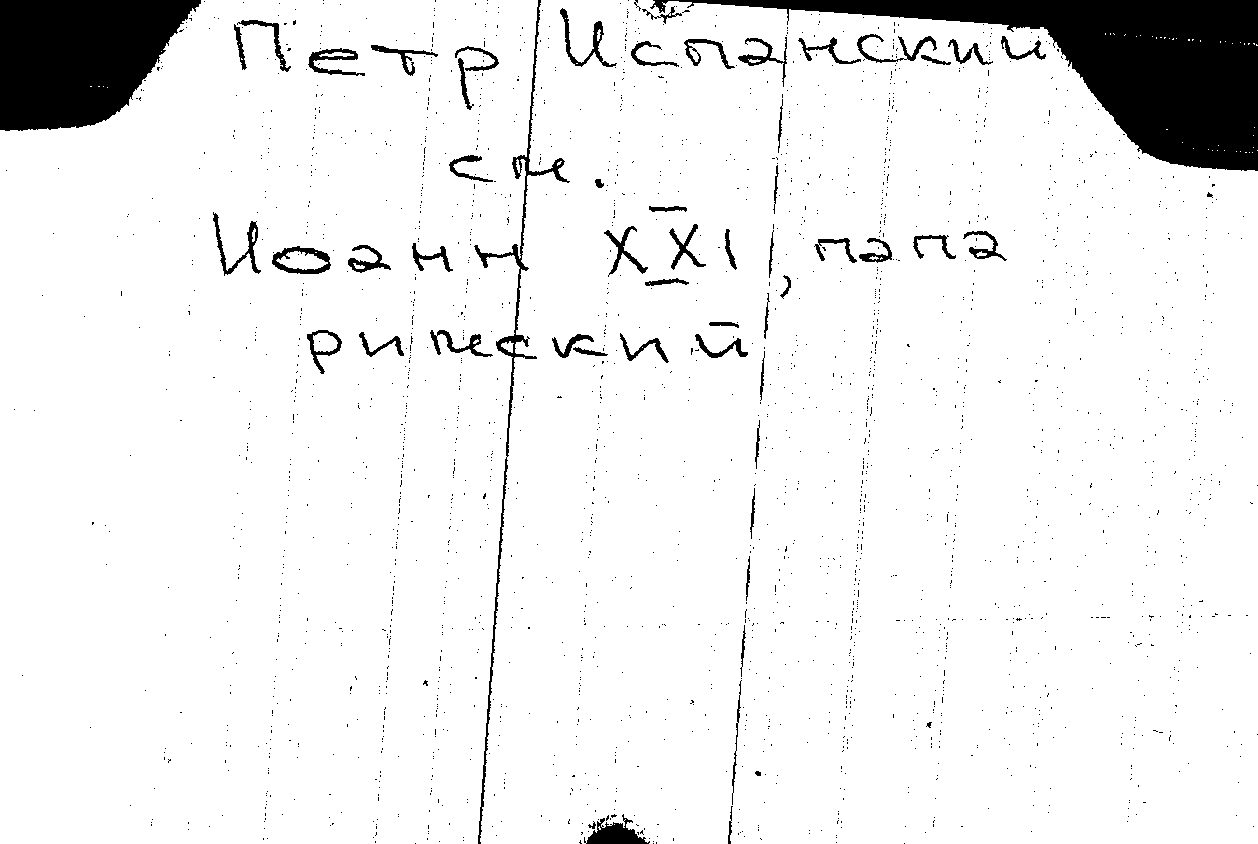 Петр Испанский
см.
Иоанн XXI, папа
римский